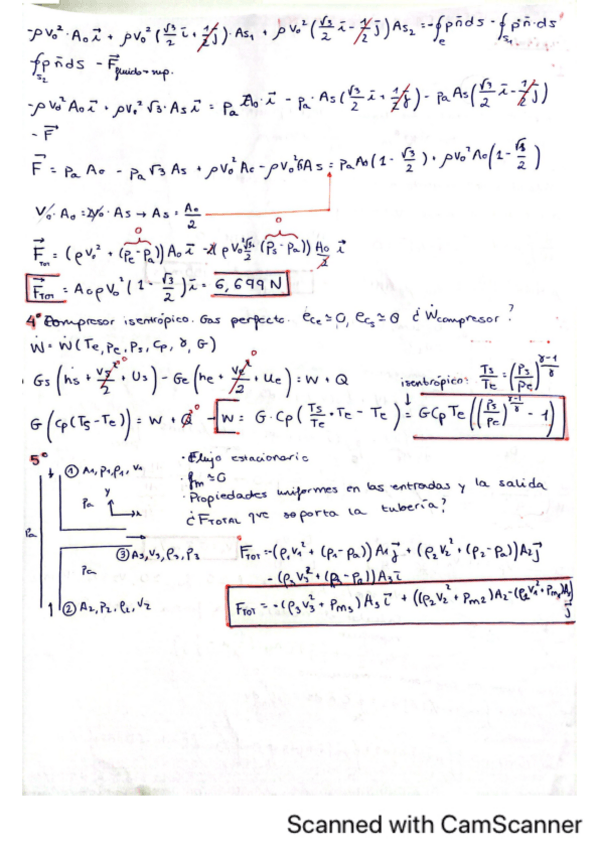 -ρV₀²·A₀ī + ρV₀²(√3/2 ī + 1/2 j)·As₁ + ρV₀²(√3/2 ī - 1/2 j)As₂ = -∮e pn̄ds - ∮s₁ pn̄·ds
∮s₂ pn̄ds - F̄fluido→sup.
-ρV₀²A₀ī + ρV₀²√3·Asī = pa A₀·ī - pa·As(√3/2 ī + 1/2 j) - pa As(√3/2 ī - 1/2 j)
- F̄
F̄ = pa A₀ - pa√3 As + ρV₀²A₀ - ρV₀²√3As = paA₀(1 - √3/2) + ρV₀²A₀(1 - √3/2)
V₀·A₀ = 2V₀·As → As = A₀/2
0 0
F̄Tot = (ρV₀² + (Pe-Pa))A₀ī - 2(ρV₀²√3/2 (Ps-Pa)) A₀/2 ī
F̄TOT = A₀ρV₀²(1 - √3/2)ī = 6,699 N
4º Compresor isentrópico. Gas perfecto. ėce ≃ 0, ėcs ≃ 0 ¿Ẇcompresor?
Ẇ = Ẇ(Te, Pe, Ps, Cp, γ, G)
Gs(hs + Vs²/2 + Us) - Ge(he + Ve²/2 + Ue) = W + Q
isentrópico: Ts/Te = (Ps/Pe)^(γ-1/γ)
G(Cp(Ts-Te)) = W + Q⁰ → W = G·Cp(Ts/Te·Te - Te) = GCpTe((Ps/Pe)^(γ-1/γ) - 1)
5º
① A₁, P₁, ρ₁, V₁
· Flujo estacionario
· fm ≃ 0
· Propiedades uniformes en las entradas y la salida
¿FTOTAL que soporta la tubería?
Pa
y
x
Pa
③ A₃, V₃, P₃, ρ₃
Pa
② A₂, P₂, ρ₂, V₂
FTOT = -(ρ₁V₁² + (P₁-Pa))A₁j + (ρ₂V₂² + (P₂-Pa))A₂j
- (ρ₃V₃² + (P₃-Pa))A₃ī
FTOT = -(ρ₃V₃² + Pm₃)A₃ī + ((ρ₂V₂² + Pm₂)A₂ - (ρ₁V₁² + Pm₁)A₁)j
Scanned with CamScanner